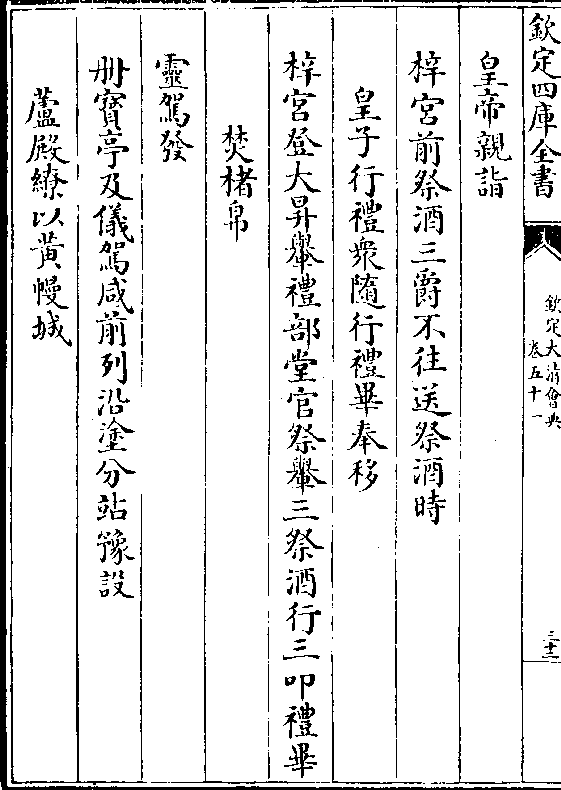 欽定四庫全書
欽定大清會典
卷五十一
三十三
皇帝親詣
梓宮前祭酒三爵不往送祭酒時
皇子行禮衆隨行禮畢奉移
梓宮登大昇轝禮部堂官祭轝三祭酒行三叩禮畢
焚楮帛
靈駕發
冊寶亭及儀駕咸前列沿塗分站豫設
蘆殿繚以黄幔城